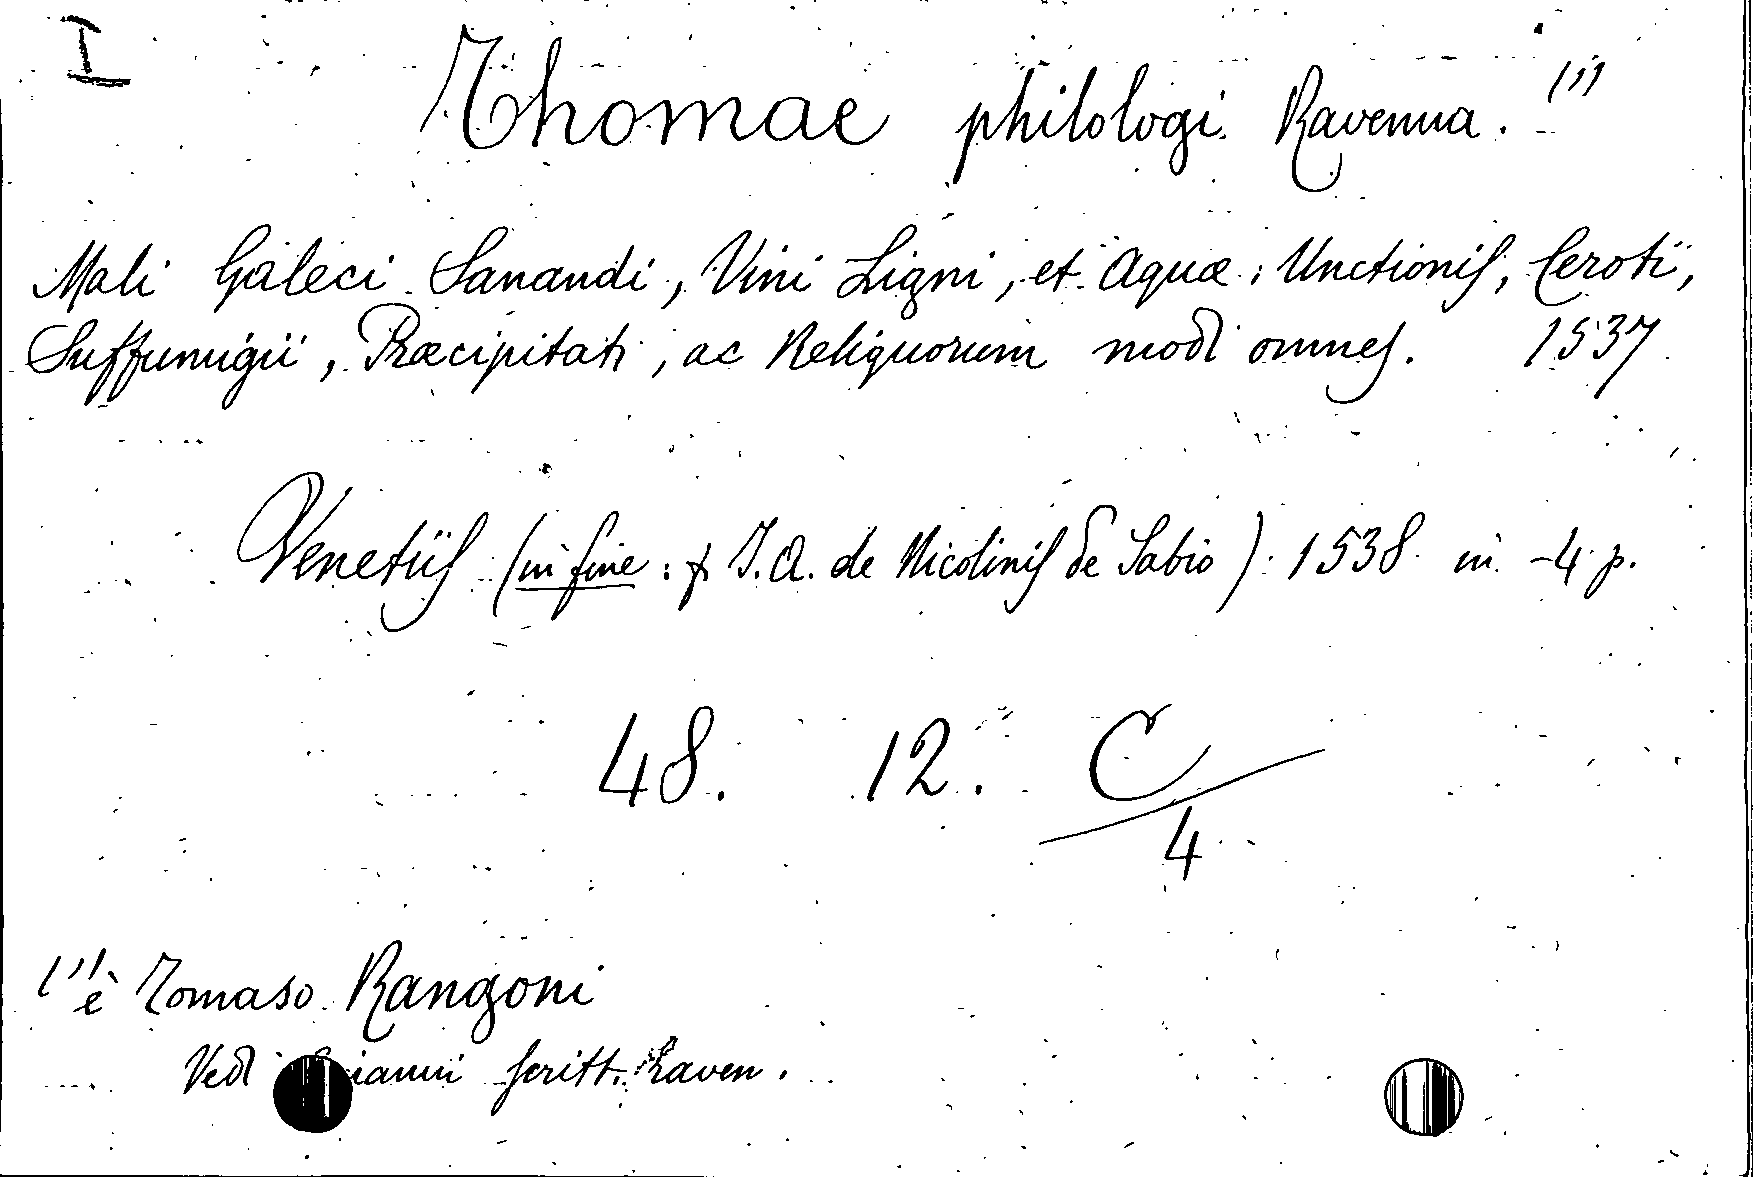 I
Thomae philologi Ravenna. (1)
Mali Galeci Sanandi, Vini Ligni, et Aquæ: Unctionis, Ceroti,
Suffumigii, Præcipitati, ac Reliquorum modi omnes. 1537
Venetiis (in fine: p J. A. de Nicolinis de Sabio) 1538 in -4 p.
48. 12. C/4
(1) è Tomaso Rangoni
Vedi scritt. Raven.